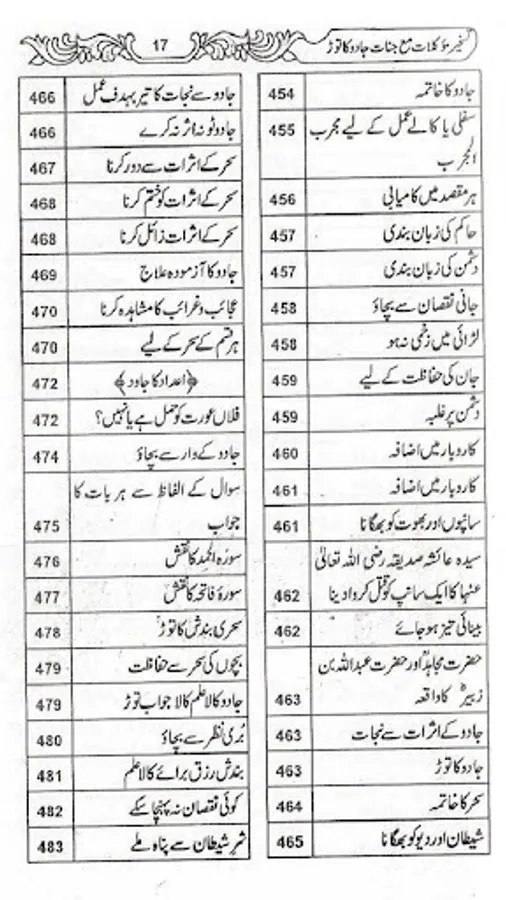 تسخیر مؤکلات مع جنات جادو کا توڑ
17
جادو کا خاتمہ 454
سفلی یا کالے عمل کے لیے مجرب 455
المجرب
ہر مقصد میں کامیابی 456
حاکم کی زبان بندی 457
دشمن کی زبان بندی 457
جانی نقصان سے بچاؤ 458
لڑائی میں زخمی نہ ہو 458
جان کی حفاظت کے لیے 459
دشمن پر غلبہ 459
کاروبار میں اضافہ 460
کاروبار میں اضافہ 461
سانپوں اور بھوت کو بھگانا 461
سیدہ عائشہ صدیقہ رضی اللہ تعالیٰ
عنہا کا ایک سانپ کو قتل کروا دینا 462
بینائی تیز ہو جائے 462
حضرت مجاہدؒ اور حضرت عبداللہ بن
زبیرؓ کا واقعہ 463
جادو کے اثرات سے نجات 463
جادو کا توڑ 463
سحر کا خاتمہ 464
شیطان اور دیو کو بھگانا 465
جادو سے نجات کا تیر بہدف عمل 466
جادو ٹونہ اثر نہ کرے 466
سحر کے اثرات سے دور کرنا 467
سحر کے اثرات کو ختم کرنا 468
سحر کے اثرات زائل کرنا 468
جادو کا آزمودہ علاج 469
عجائب وغرائب کا مشاہدہ کرنا 470
ہر قسم کے سحر کے لیے 470
﴿اعداد کا جادو﴾ 472
فلاں عورت کو حمل ہے یا نہیں؟ 472
جادو کے وار سے بچاؤ 474
سوال کے الفاظ سے ہر بات کا
جواب 475
سورۃ الحمد کا نقش 476
سورۂ فاتحہ کا نقش 477
سحری بندش کا توڑ 478
بچوں کی سحر سے حفاظت 479
جادو کالا علم کا لاجواب توڑ 479
بُری نظر سے بچاؤ 480
بندش رزق برائے کالا علم 481
کوئی نقصان نہ پہنچا سکے 482
شرِ شیطان سے پناہ ملے 483